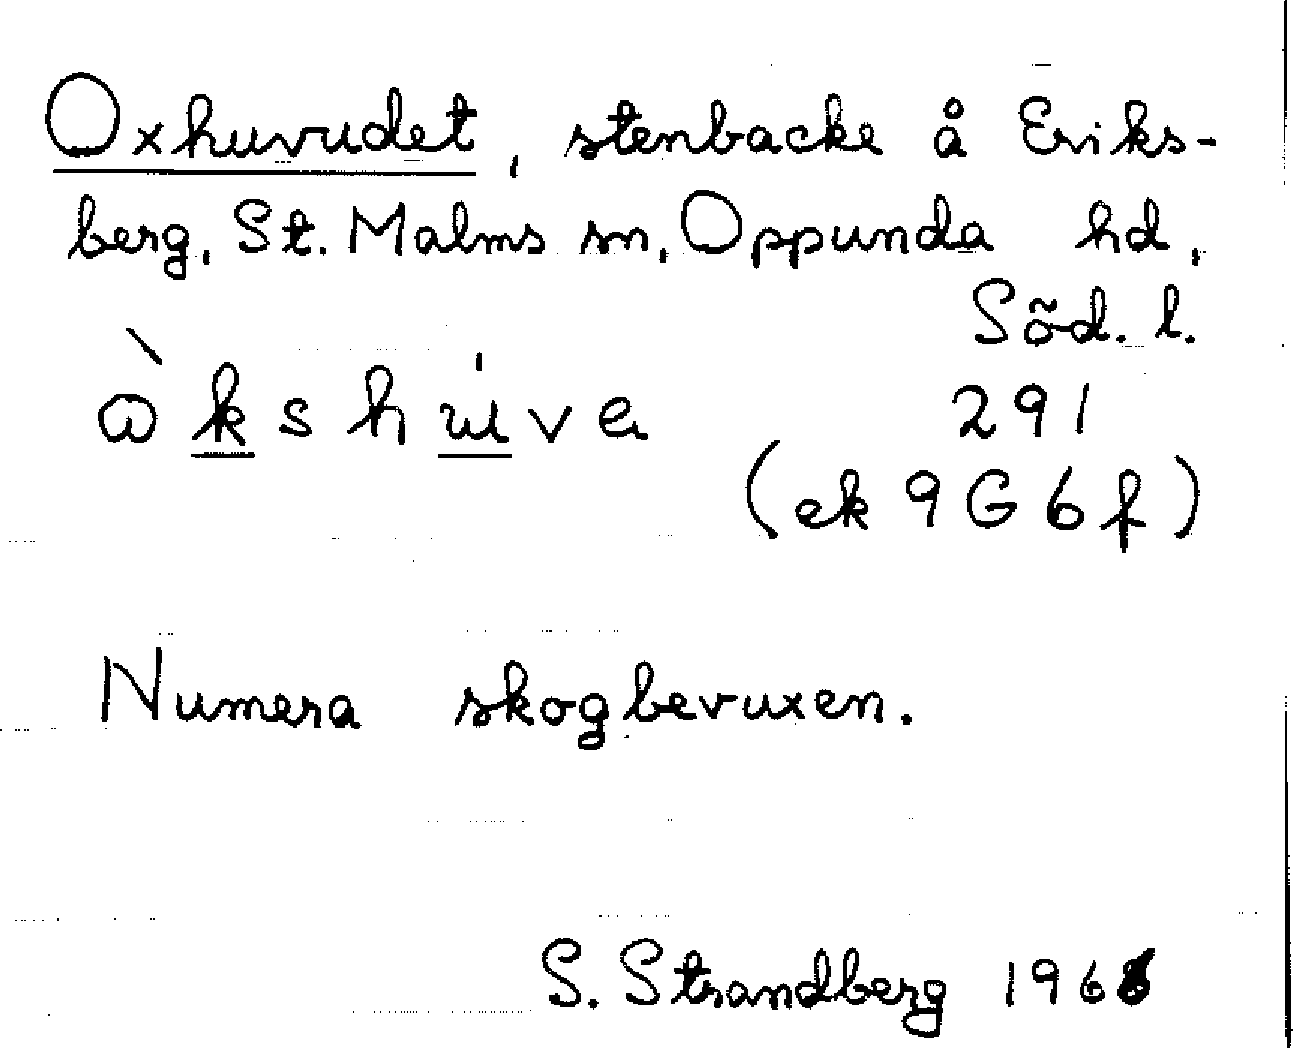 Oxhuvudet, stenbacke å Eriks-
berg, St. Malms sn, Oppunda hd,
Söd. l.
291
(ek 9G6f)
Numera skogbevuxen.
S. Strandberg